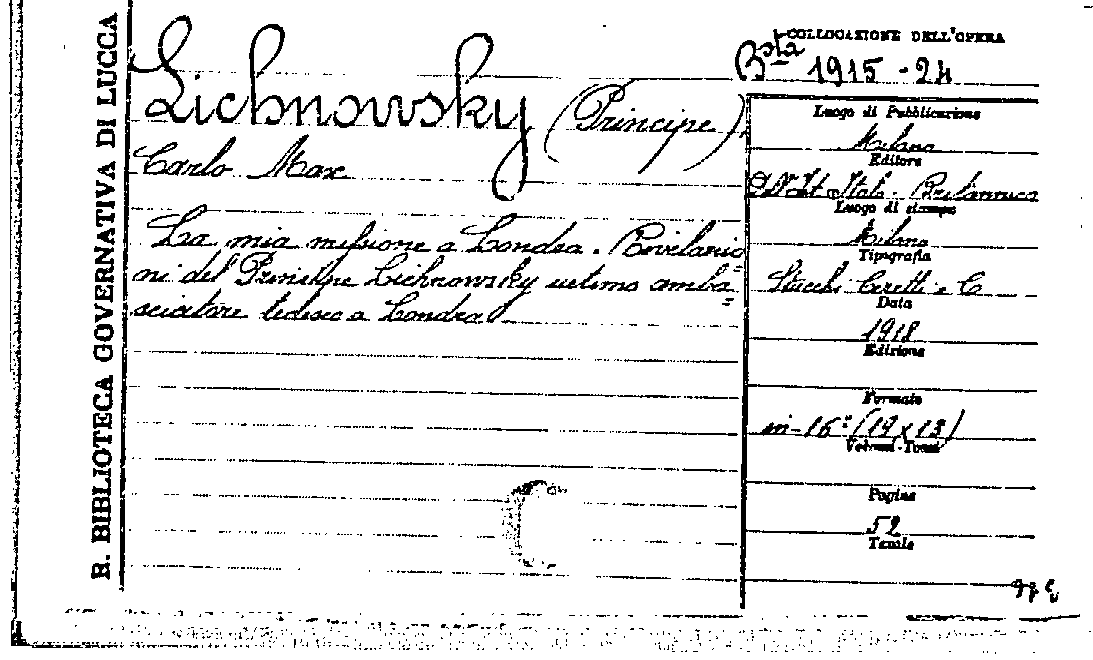 R. BIBLIOTECA GOVERNATIVA DI LUCCA
Lichnowsky (Principe)
Carlo Max
La mia missione a Londra. Rivelazio=
ni del Principe Lichnowsky ultimo amba=
sciatore tedesco a Londra
COLLOCAZIONE DELL'OPERA
Bsta 1915 - 24
Luogo di Pubblicazione
Milano
Editore
Italo-Britannica
Luogo di stampa
Milano
Tipografia
Stucchi Ceretti e C
Data
1918
Edizione
Formato
in-16° (19 x 13)
Volumi-Tomi
Pagine
52
Tavole